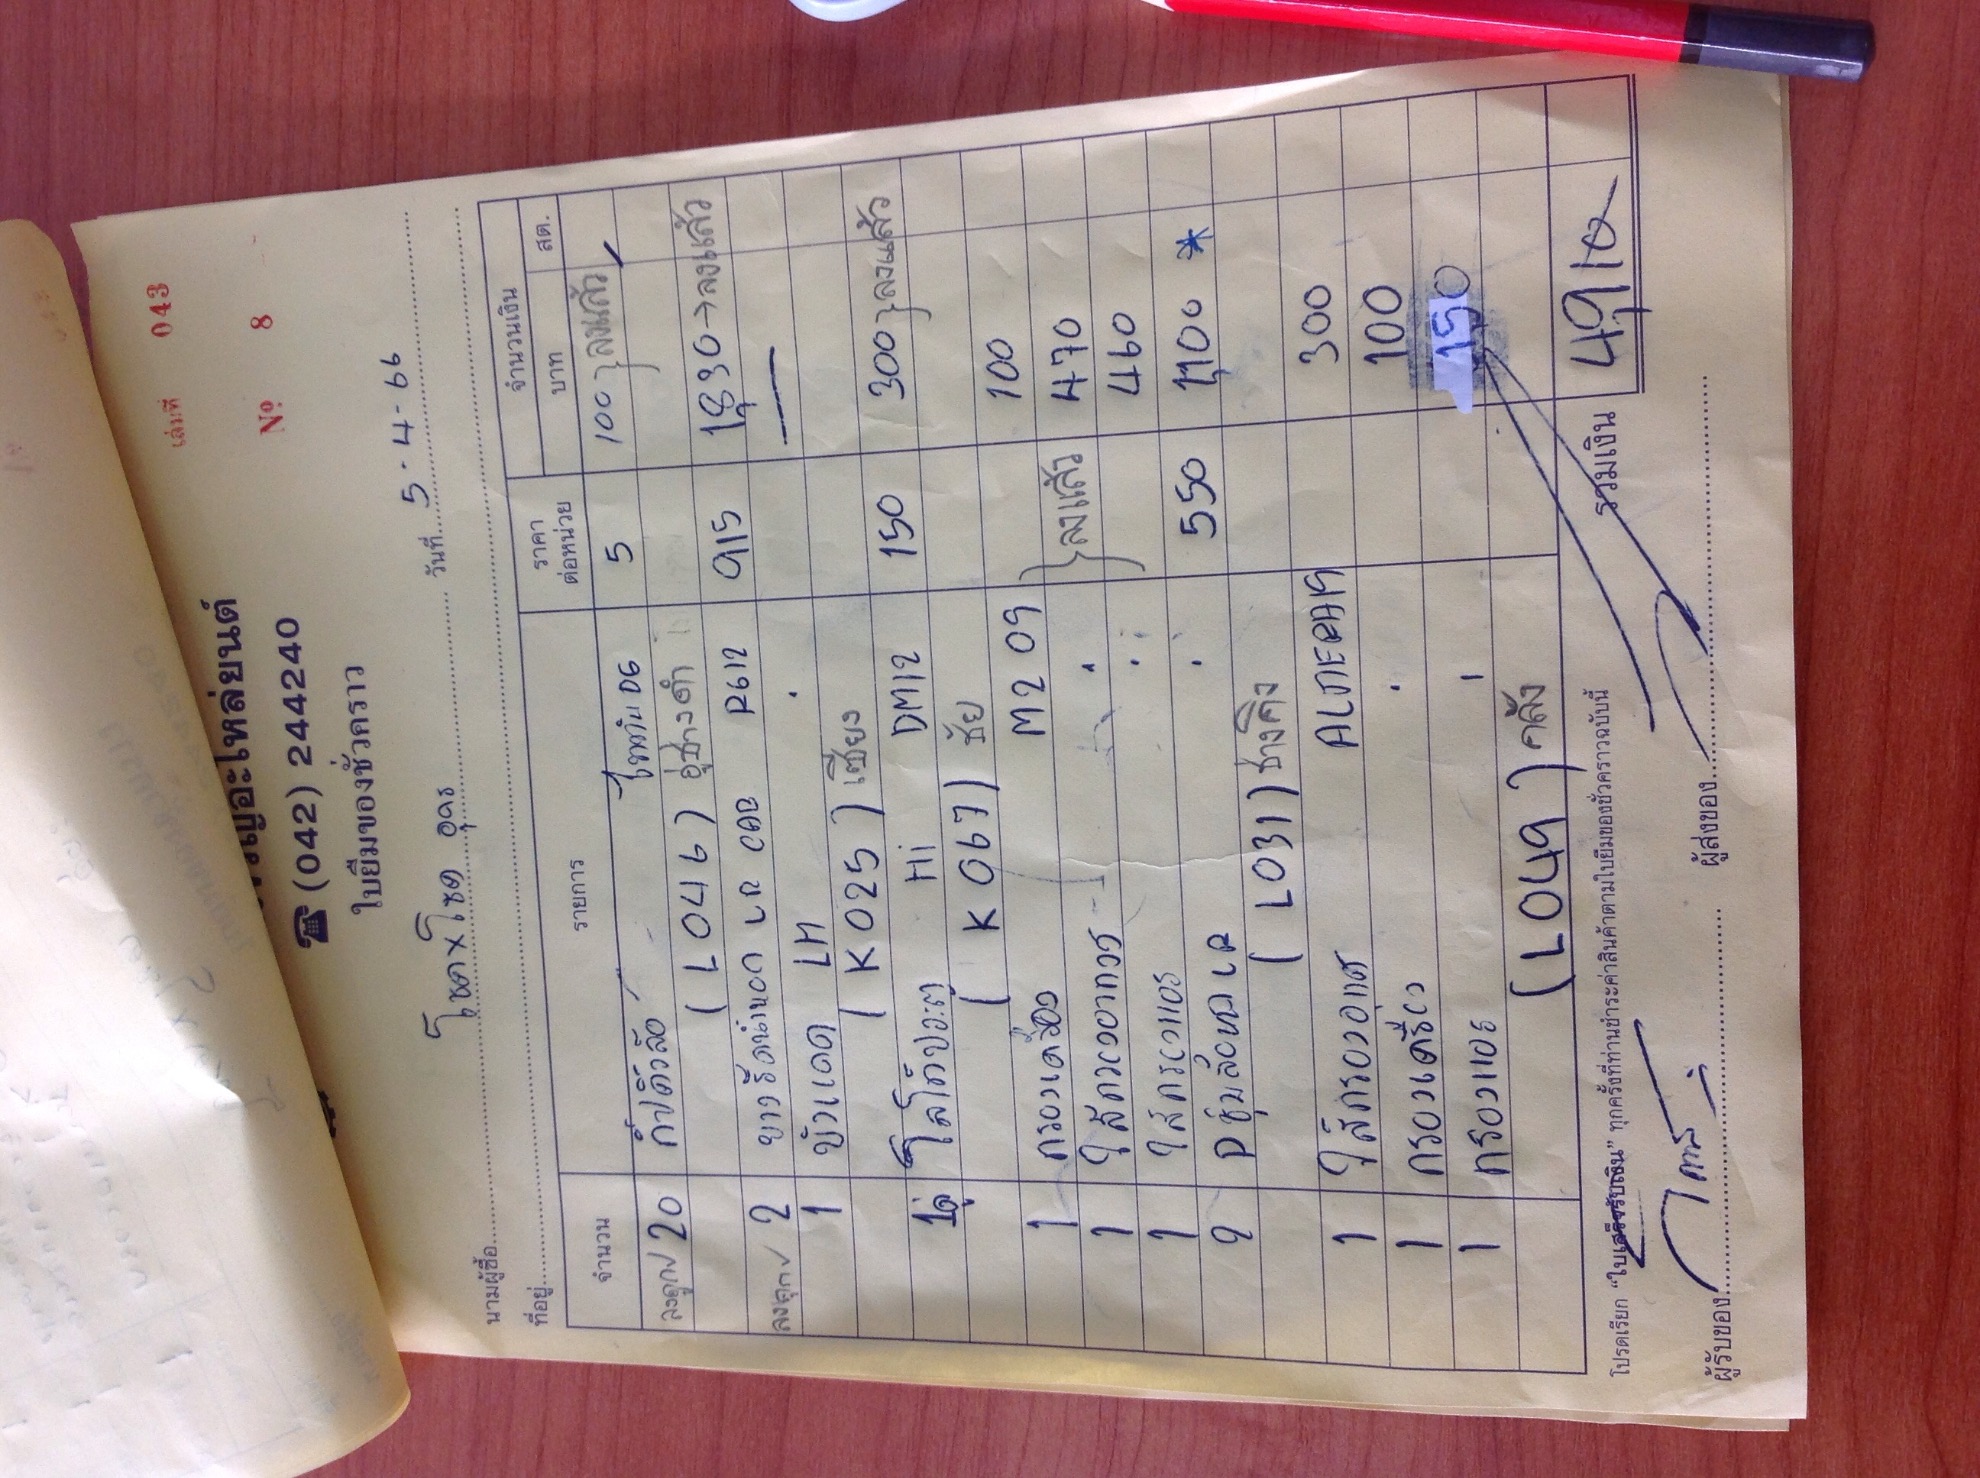 เล่มที่ 043
เจริญอะไหล่ยนต์
☎ (042) 244240
№ 8
ใบยืมของชั่วคราว
นามผู้ซื้อ โชคxโชค อุดร วันที่ 5-4-66
ที่อยู่
จำนวน รายการ ราคาต่อหน่วย จำนวนเงิน บาท สต.
ลงถูก 20 กิ๊ปติ๊วล้อ ไททัน D6 5 100 ลงแล้ว
(L046) อู่ช่างดำ
ลงถูก 2 ยางรีดนำนอก LR CAR R612 915 1,830 → ลงแล้ว
1 บัวเดด LH
(K025) เซียง
1คู่ โลโก้ประตู Hi DM12 150 300 ลงแล้ว
(K067) ชัย
1 กรองเครื่อง M209 100
1 ไส้กรองอากาศ 470
ลงแล้ว
1 ไส้กรองแอร์ 460
2 ปุ้มล้อหลัง LR 550 1,100 *
(L031) ช่างคิง
1 ไส้กรองอากาศ ALMERA19 300
1 กรองเครื่อง 100
1 กรองแอร์ 150
(L049) คลัง
รวมเงิน 4,910
โปรดเรียก "ใบเสร็จรับเงิน" ทุกครั้งที่ท่านชำระค่าสินค้าตามใบยืมของชั่วคราวฉบับนี้
ผู้รับของ ผู้ส่งของ